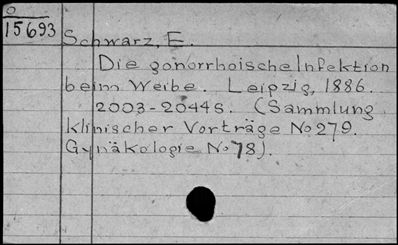 O
15693
Schwarz, E.
Die gonorrhoische Infektion
beim Weibe. Leipzig, 1886.
2003-2044 S. (Sammlung
klinischer Vorträge No 279.
Gynäkologie No 78).